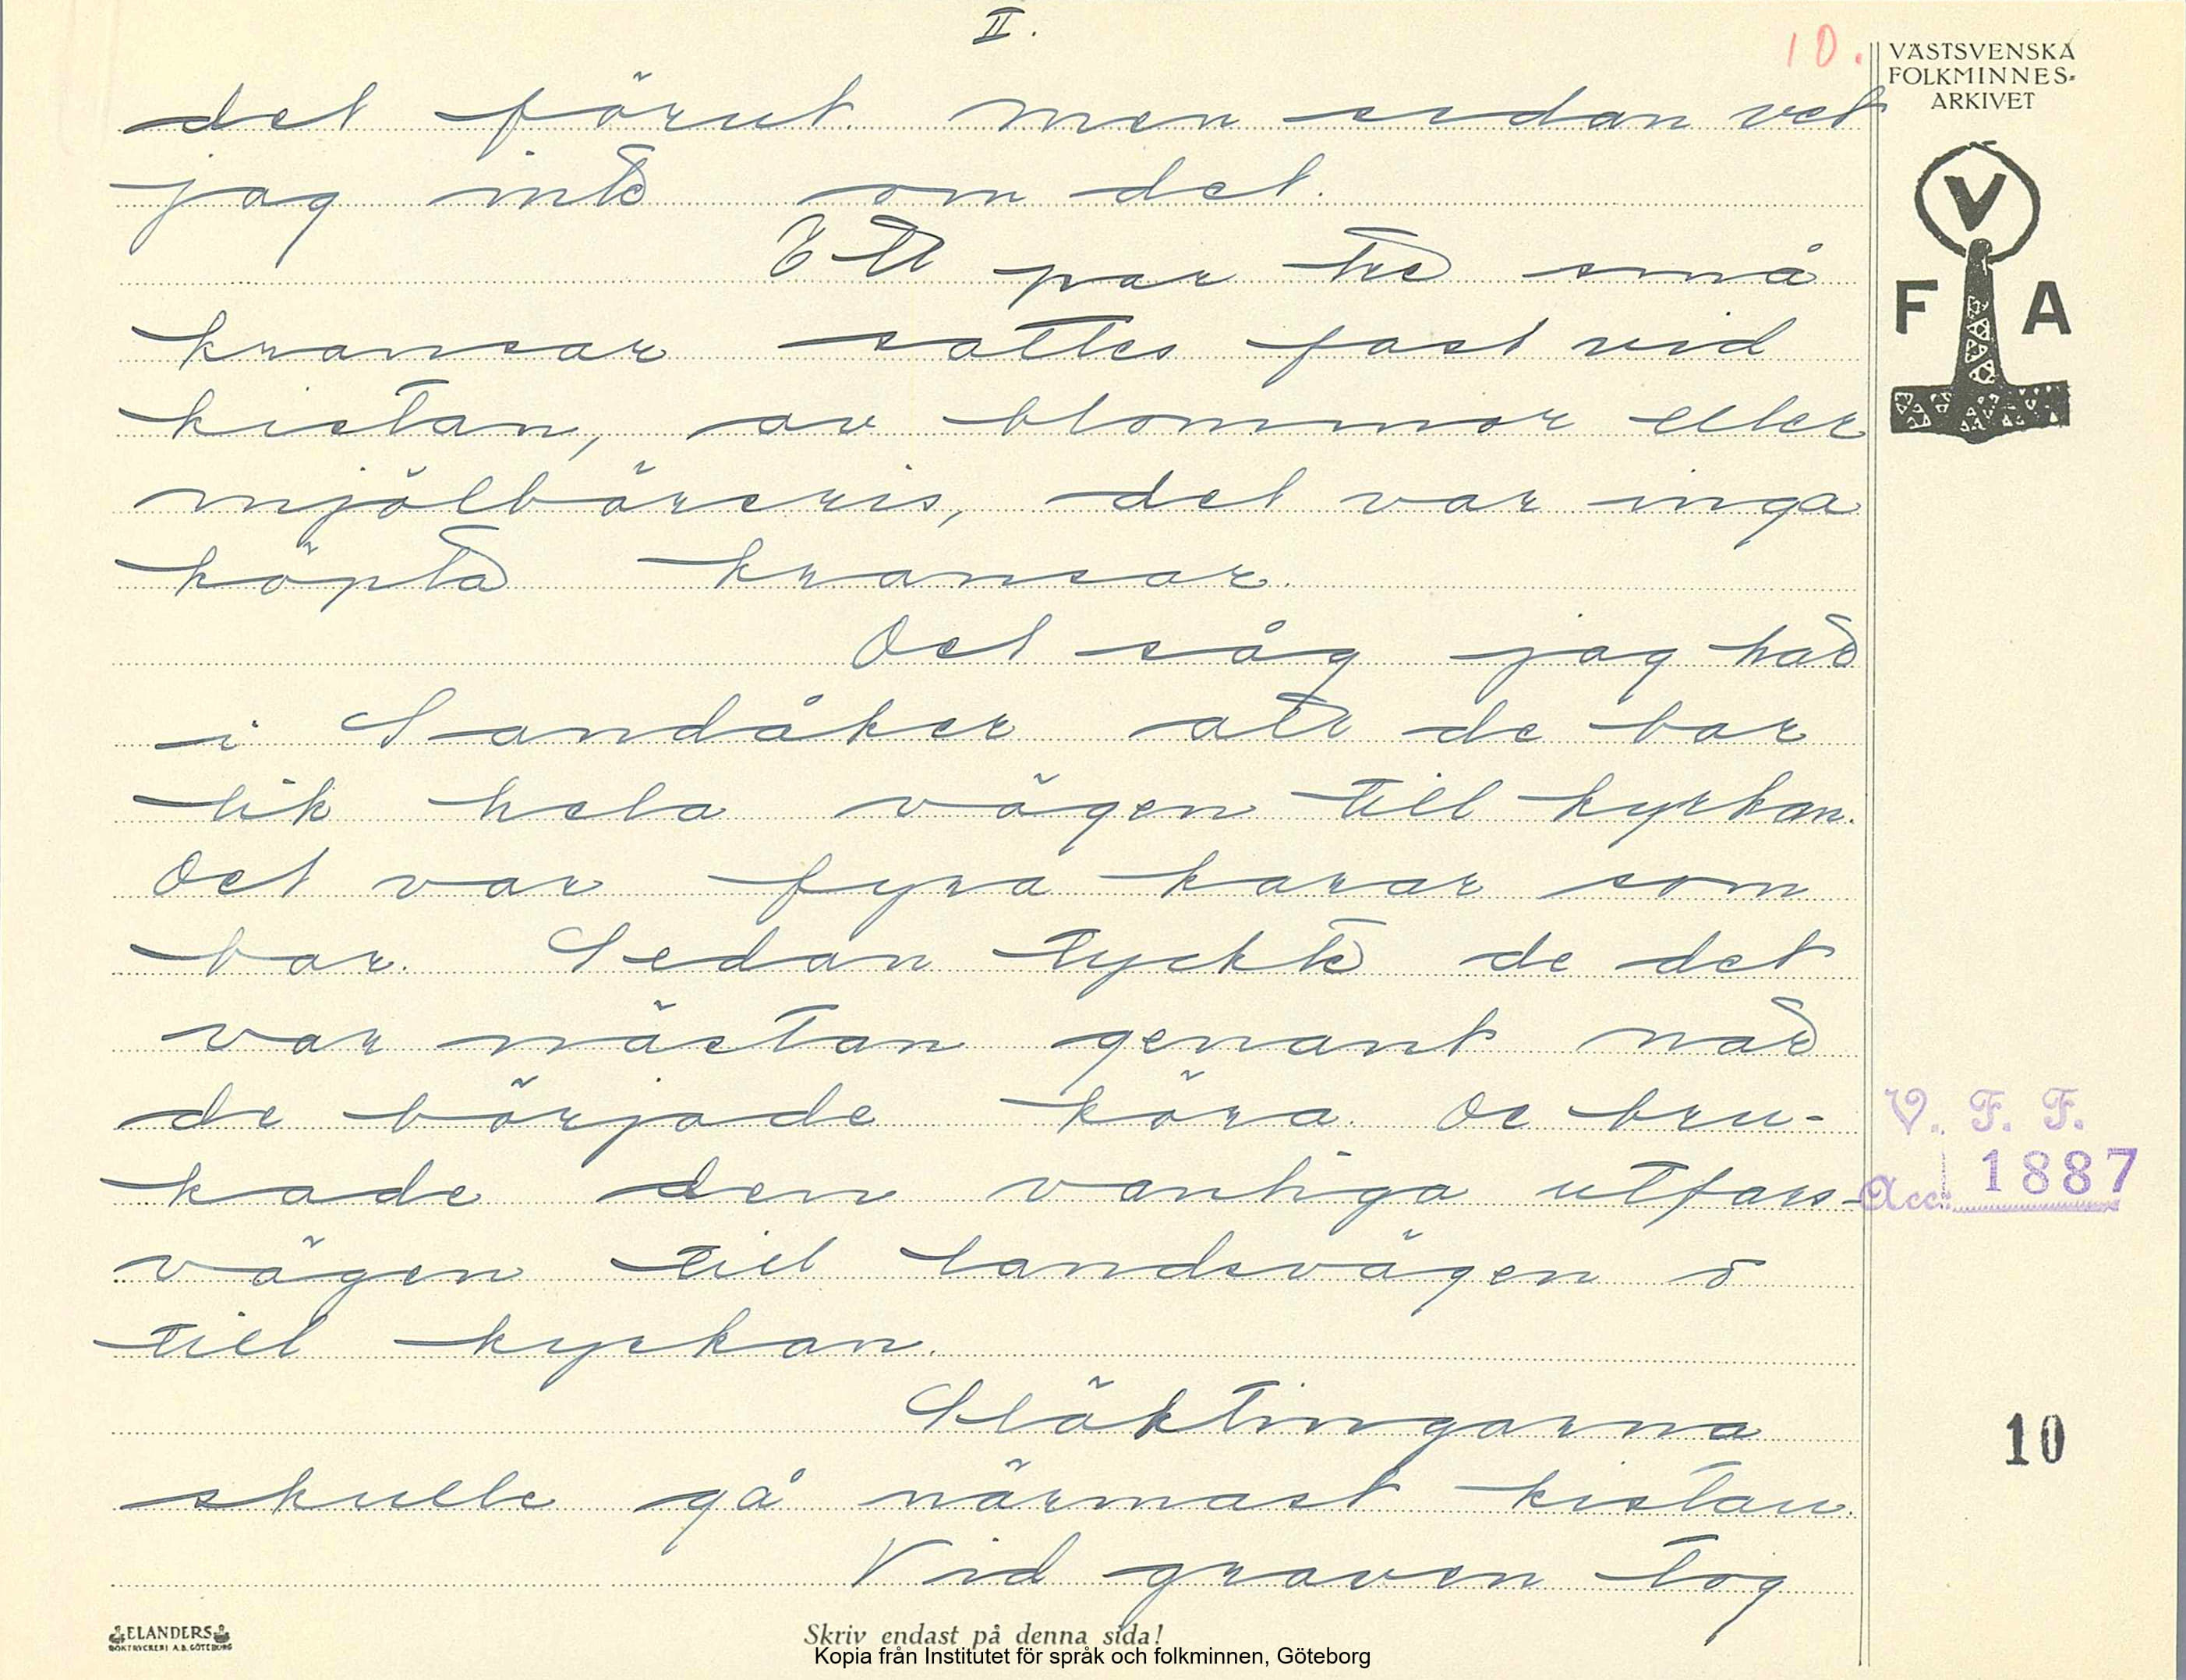 II.
10.
VÄSTSVENSKA
FOLKMINNES-
ARKIVET
V
F A
det förut men sedan vet
jag inte om det.
Ett par tre små
kransar sattes fast vid
kistan, av blommor eller
mjölbäreris, det var inga
köpta kransar.
Det såg jag här
i Sandåker att de bar
lik hela vägen till kyrkan.
Det var fyra karar som
bar. Sedan tyckte de det
var nästan genant när
de började köra. De bru-
kade den vanliga utfars-
vägen till landsvägen o
till kyrkan.
Släktingarna
skulle gå närmast kistan.
Vid graven tog
V. F. F.
Acc. 1887
10
ELANDERS
BOKTRYCKERI A.B. GÖTEBORG
Skriv endast på denna sida!
Kopia från Institutet för språk och folkminnen, Göteborg